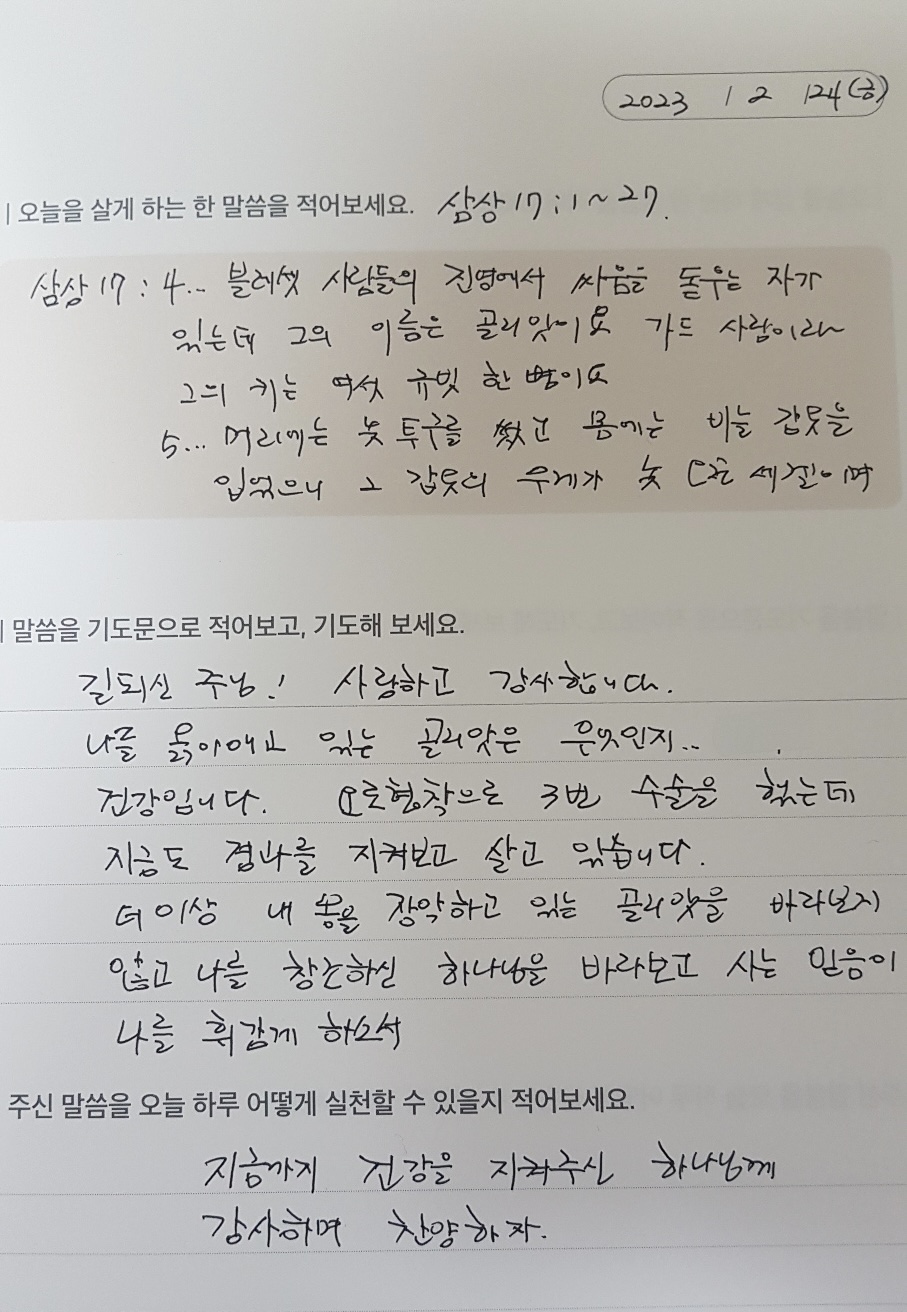 2023 12 24(금)
오늘을 살게 하는 한 말씀을 적어보세요. 삼상 17 : 1 ~ 27.
삼상 17 : 4... 블레셋 사람들의 진영에서 싸움을 돋우는 자가
있는데 그의 이름은 골리앗이요 가드 사람이라
그의 키는 여섯 규빗 한 뼘이요
5... 머리에는 놋 투구를 썼고 몸에는 비늘 갑옷을
입었으니 그 갑옷의 무게가 놋 오천 세겔이며
말씀을 기도문으로 적어보고, 기도해 보세요.
길되신 주님! 사랑하고 감사합니다.
나를 옭아매고 있는 골리앗은 무엇인지..
건강입니다. 요로협착으로 3번 수술을 했는데
지금도 경과를 지켜보고 살고 있습니다.
더이상 내 몸을 장악하고 있는 골리앗을 바라보지
않고 나를 창조하신 하나님을 바라보고 사는 믿음이
나를 휘감게 하소서
주신 말씀을 오늘 하루 어떻게 실천할 수 있을지 적어보세요.
지금까지 건강을 지켜주신 하나님께
감사하며 찬양하자.